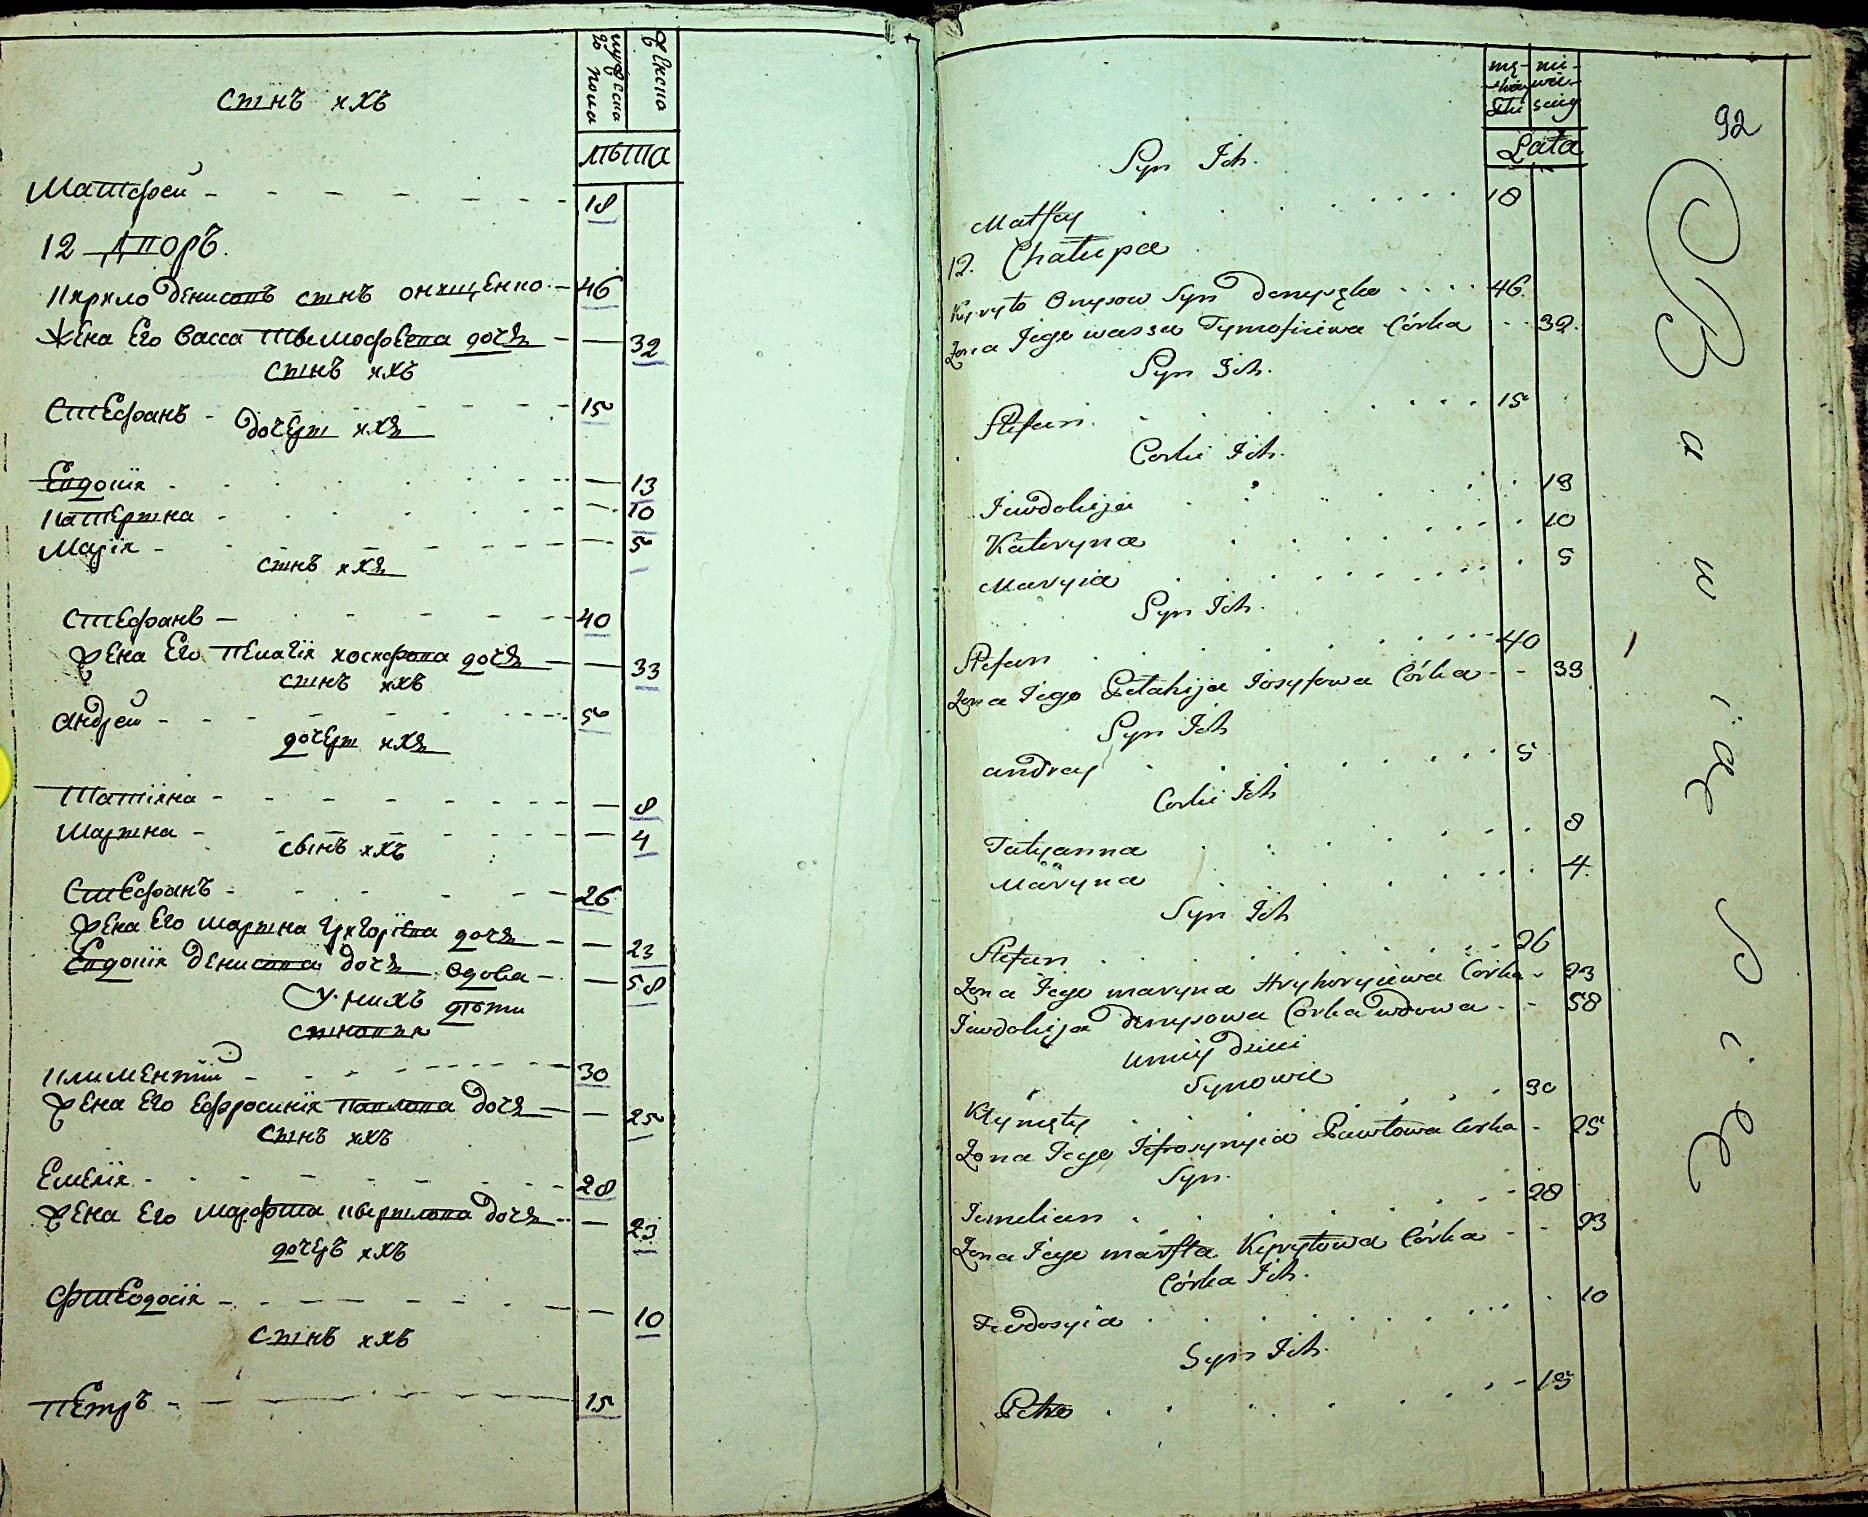 мужеска
пола
женска
сынъ ихъ
лѣта
Матѳей 18
12 дворъ.
Кирило Денисовъ сынъ Онищенко 46
Жена Его Васса Тимофеева дочь 32
сынъ ихъ
Стефанъ 15
дочери ихъ
Евдокія 13
Катерина 10
Марія 5
сынъ ихъ
Стефанъ 40
жена Его Пелагія Иосифова дочь 33
сынъ ихъ
Андрей 5
дочери ихъ
Татіяна 8
Марина 4
сынъ ихъ
Стефанъ 26
жена Его Марина Григоріева дочь 23
Евдокія Денисова дочь вдова 58
У нихъ дѣти
сыновья
Климентій 30
жена Его Ефросинія Павлова дочь 25
сынъ ихъ
Емелія 28
жена Его Марфта Кирилова дочь 23
дочерь ихъ
Фтеодосія 10
сынъ ихъ
Петръ 15
92
Lata
Syn Ich.
Matfiy 18
12. Chałupa
Kyryło Onysow Syn Denyszko 46.
Żona Jego wassa Tymofiiewa Córka 32.
Syn Ich.
Stefan 15
Corki Ich.
Jewdokija 13
Kateryna 10
Maryia 5
Syn Ich.
Stefan 40
Żona Jego Pelahija Iosyfowa Córka 33
Syn Ich
andrey 5
Corki Ich
Tatyanna 8
Maryna 4.
Syn Ich
Stefan 26
Żona Jego maryna Hryhoryiewa Córka 23
Jewdokija Denysowa Corka wdowa 58
Unich Dzieci
Synowie
Kłymęty 30
Żona Jego Jefrosynyia Pawłowa Corka 25
Syn.
Jemelian 28
Żona Jego marfta Kyryłowa Córka 23
Córka Ich.
Fedosyia 10
Syn Ich.
Petro 15